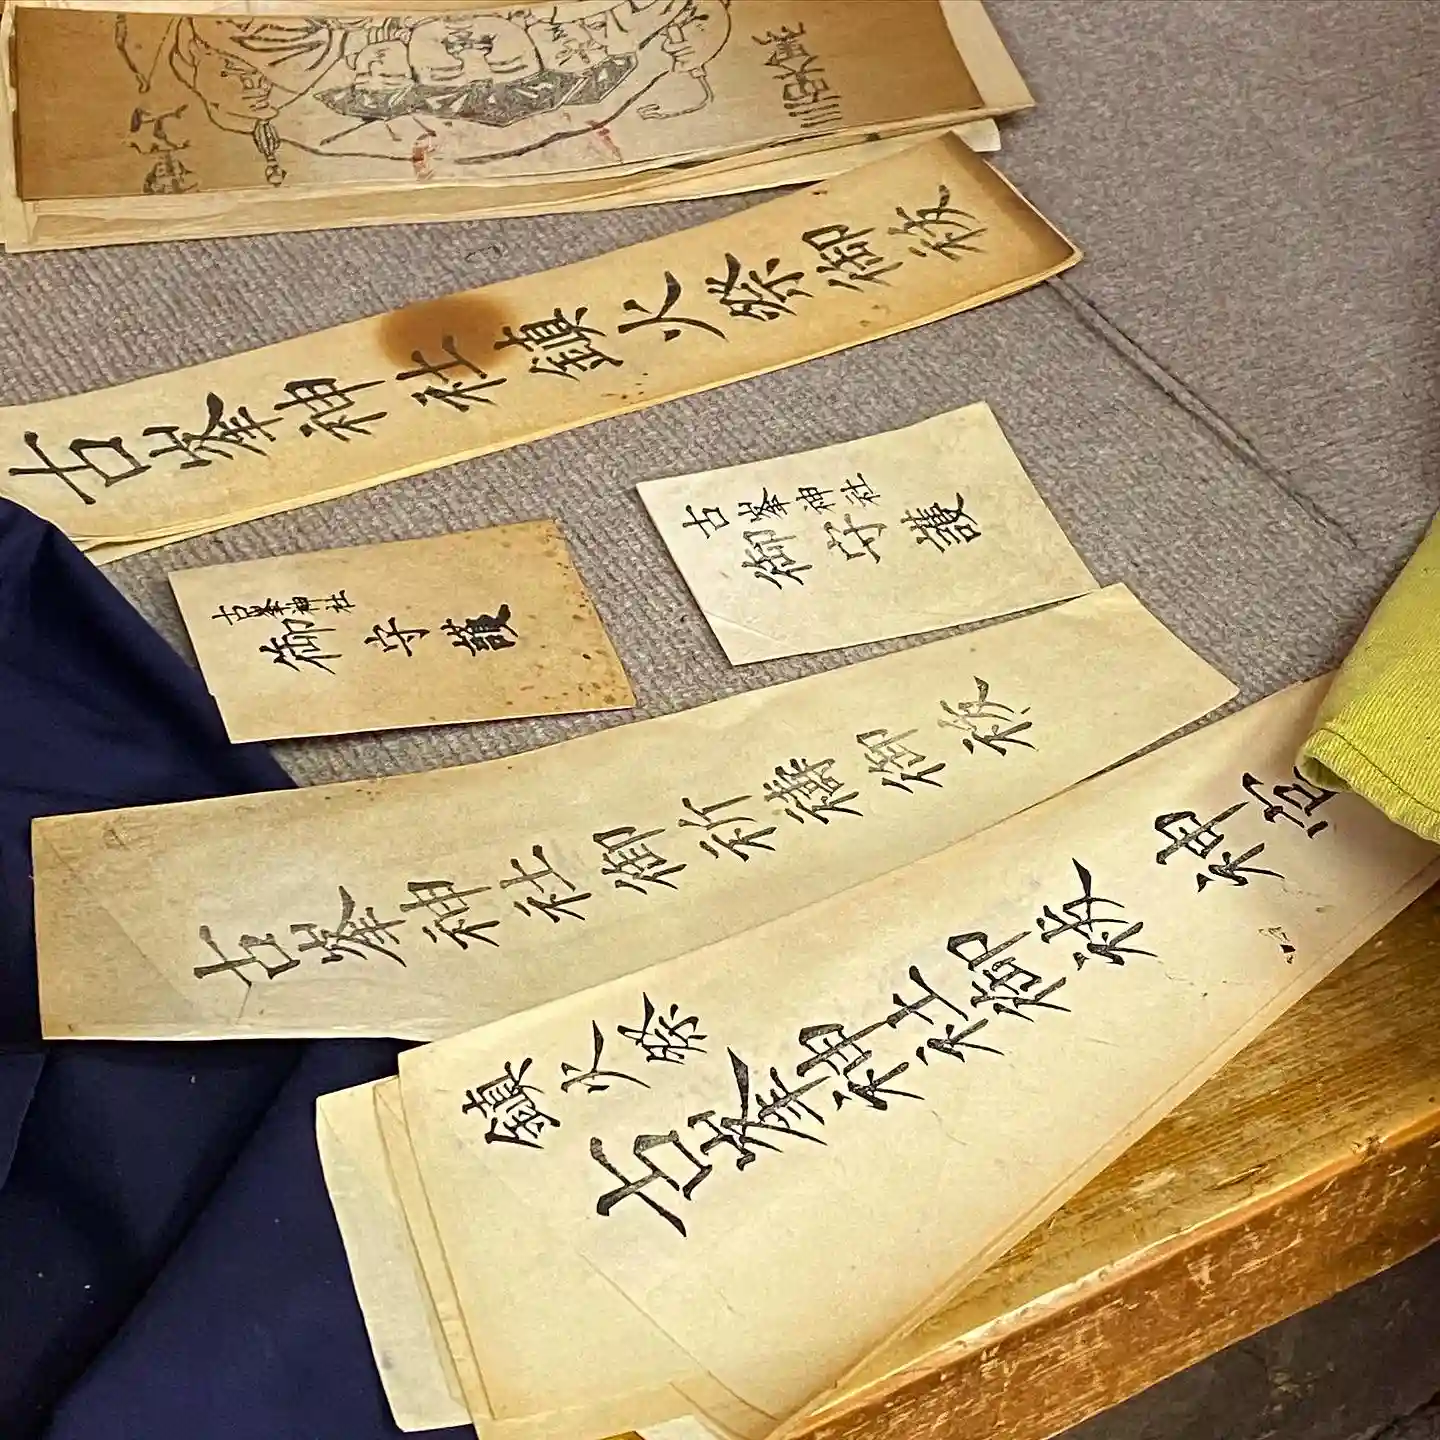 古峯神社鎮火祭御祓
古峯神社
御守護
古峯神社
御守護
古峯神社御祈祷御祓
鎮火祭
古峯神社御祓
神